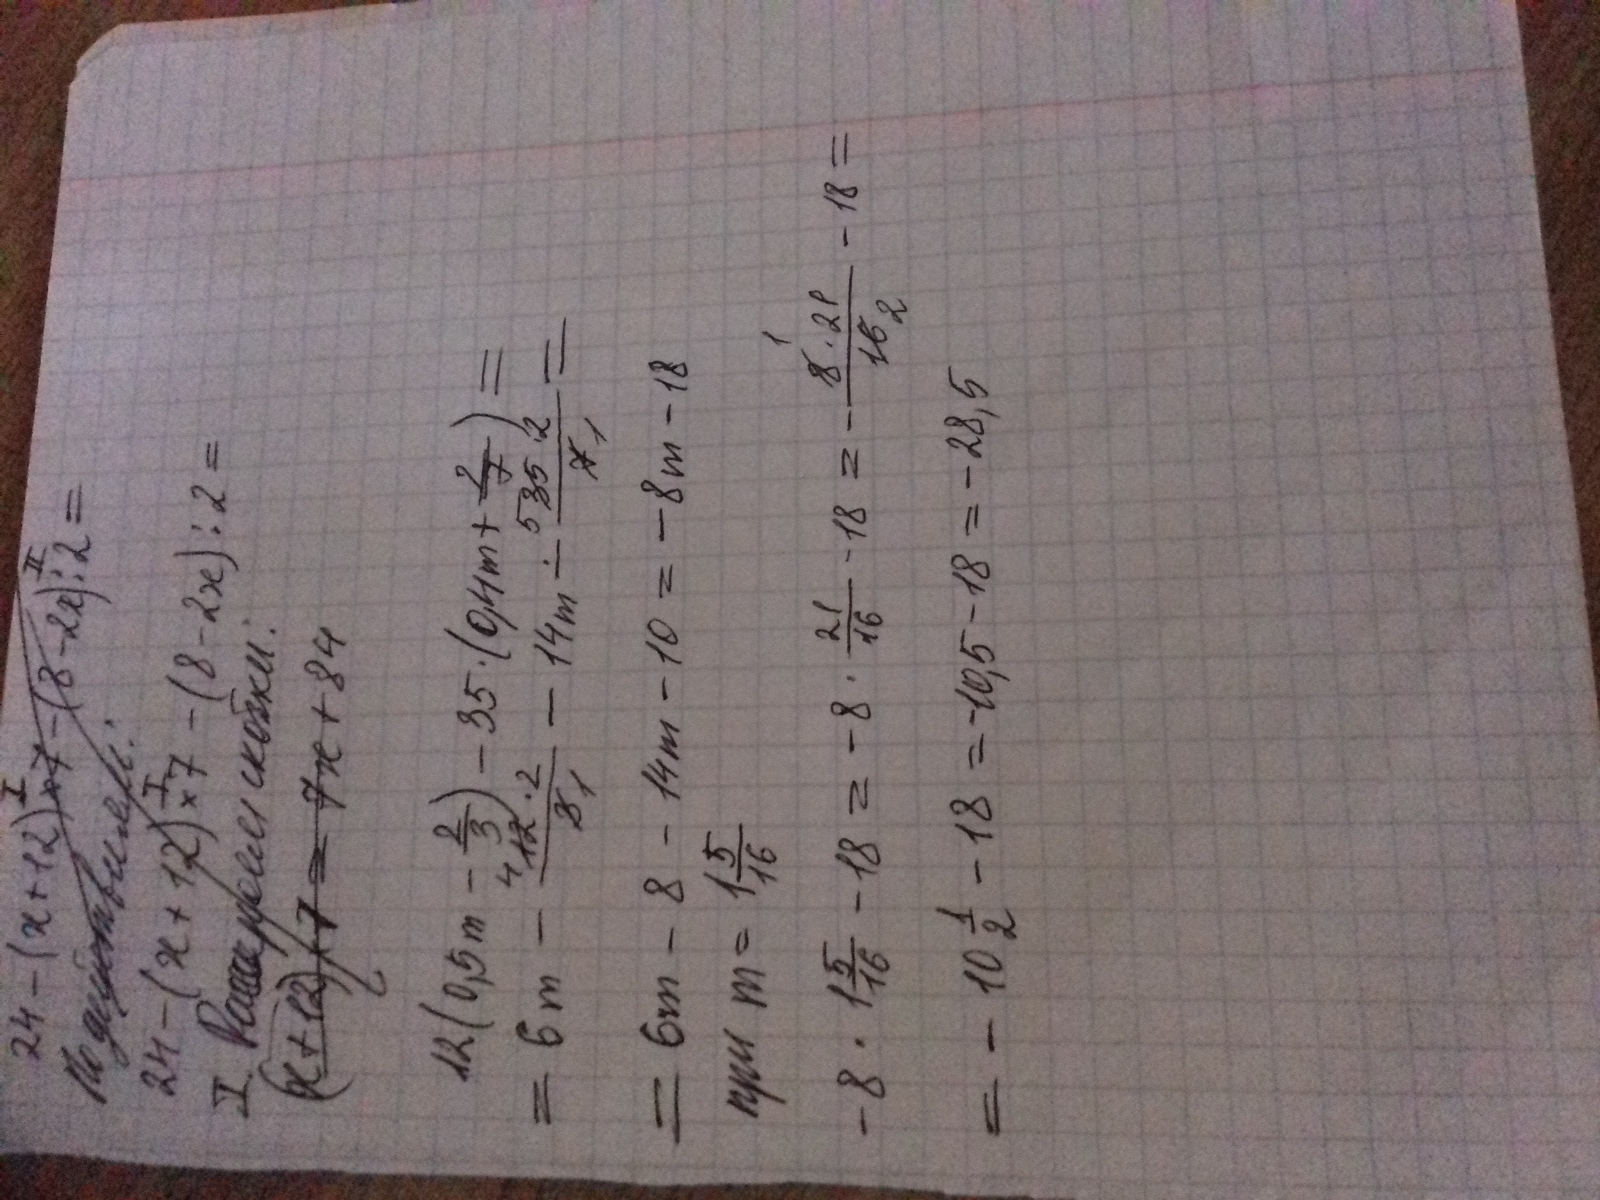 24-(x+12)×7-(8-2x):2=
I II
По действиям:
24-(x+12)×7-(8-2x):2=
I
I. Раскроем скобки:
(x+12)·7=7x+84
12(0,5m-2/3)-35·(0,4m+2/7)=
=6m-12·2/3-14m-35·2/7=
4 1 5 1
=6m-8-14m-10=-8m-18
при m=1 5/16
-8·1 5/16-18=-8·21/16-18=-8·21/16-18=
1 2
=-10 1/2-18=-10,5-18=-28,5